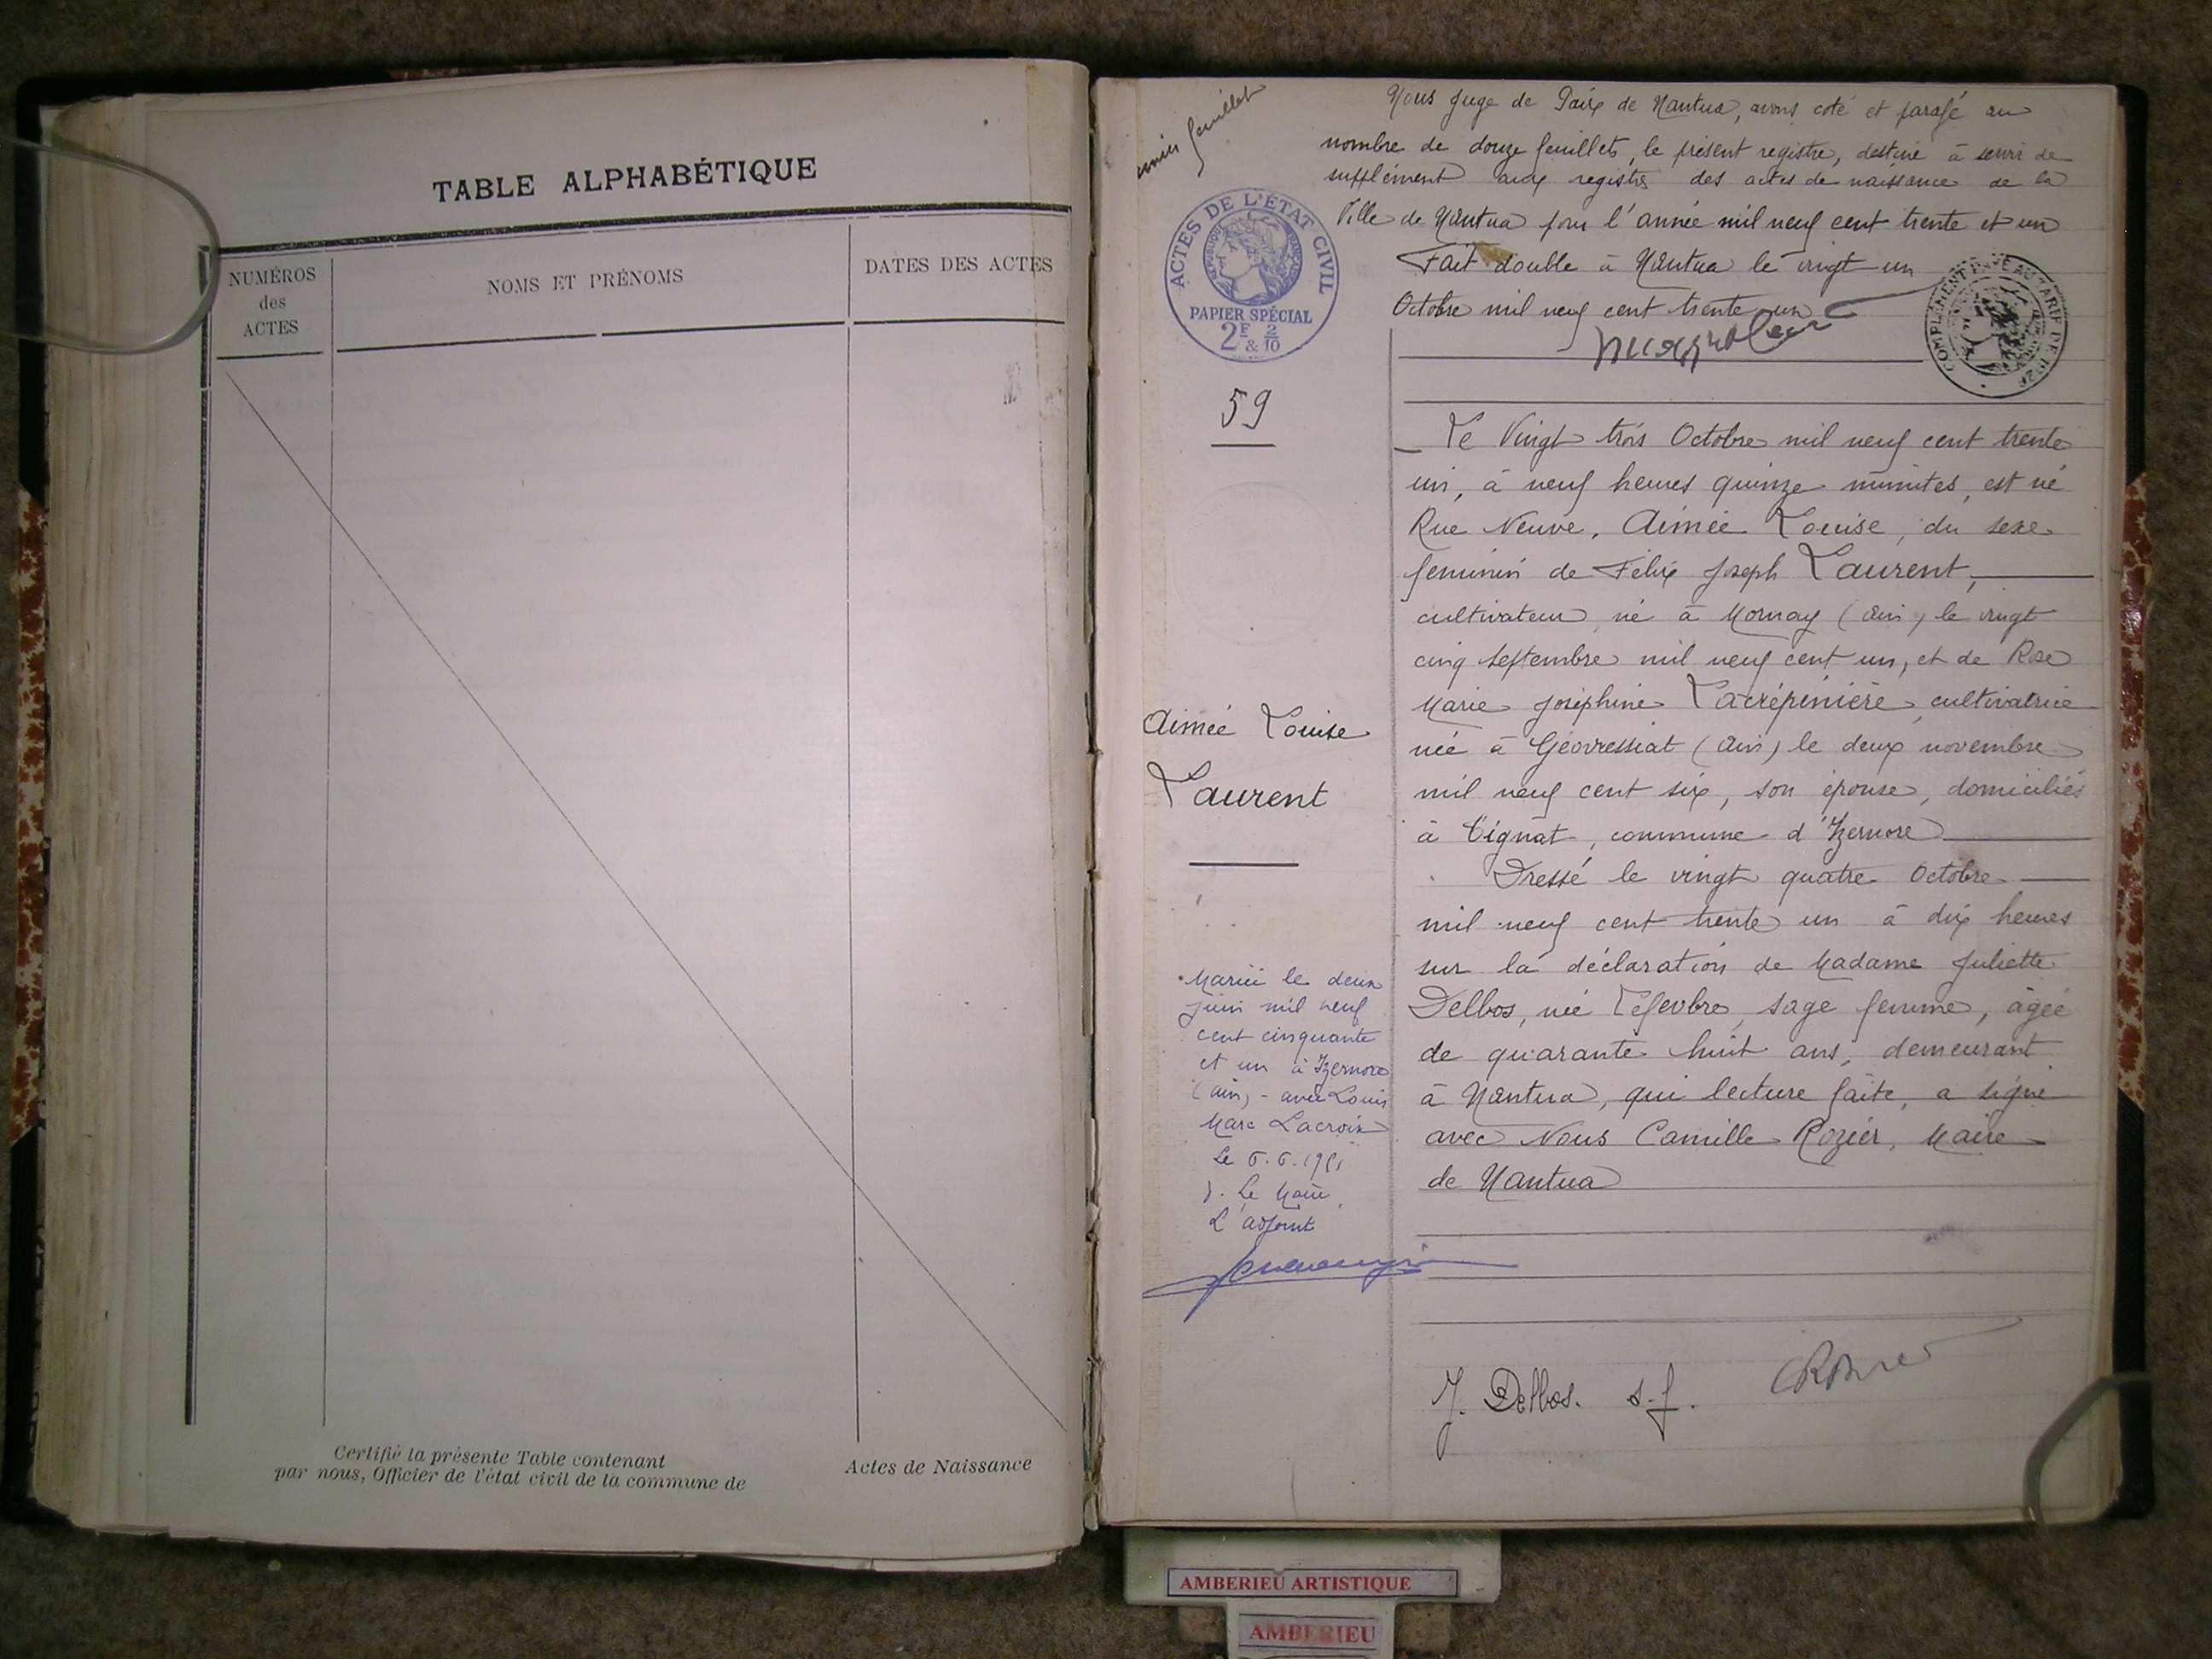 TABLE ALPHABÉTIQUE
NUMÉROS
des
ACTES
NOMS ET PRÉNOMS
DATES DES ACTES
Certifié la présente Table contenant
Actes de Naissance
par nous, Officier de l'état civil de la commune de
feuillet
Nous Juge de Paix de Nantua, avons coté et parafé au
nombre de douze feuillets, le présent registre, destiné à servir de
supplément aux registres des actes de naissance de la
Ville de Nantua pour l'année mil neuf cent trente et un
Fait double à Nantua le vingt un
Octobre mil neuf cent trente un
ACTES DE L'ÉTAT CIVIL
RÉPUBLIQUE FRANÇAISE
PAPIER SPÉCIAL
2F & 2/10
59
Le Vingt trois Octobre mil neuf cent trente
un, à neuf heures quinze minutes, est né
Rue Neuve, Aimée Louise, du sexe
feminin de Félix Joseph Laurent,
cultivateur, né à Mornay (Ain) le vingt
cinq Septembre mil neuf cent un, et de Rose
Marie Joséphine Lacrépinière, cultivatrice
née à Géovressiat (Ain) le deux novembre
mil neuf cent six, son épouse, domiciliés
à Tignat, commune d'Izernore
Dressé le vingt quatre Octobre
mil neuf cent trente un à dix heures
sur la déclaration de Madame Juliette
Delbos, née Lefevbre, sage femme, âgée
de quarante huit ans, demeurant
à Nantua, qui lecture faite, a signé
avec Nous Camille Rozier, Maire
de Nantua
Aimée Louise
Laurent
Mariée le deux
juin mil neuf
cent cinquante
et un à Izernore
(Ain) - avec Louis
Marc Lacroix
Le 6.6.1951
P. Le Maire
L'adjoint
J. Delbos. s.f.
AMBERIEU ARTISTIQUE
AMBERIEU